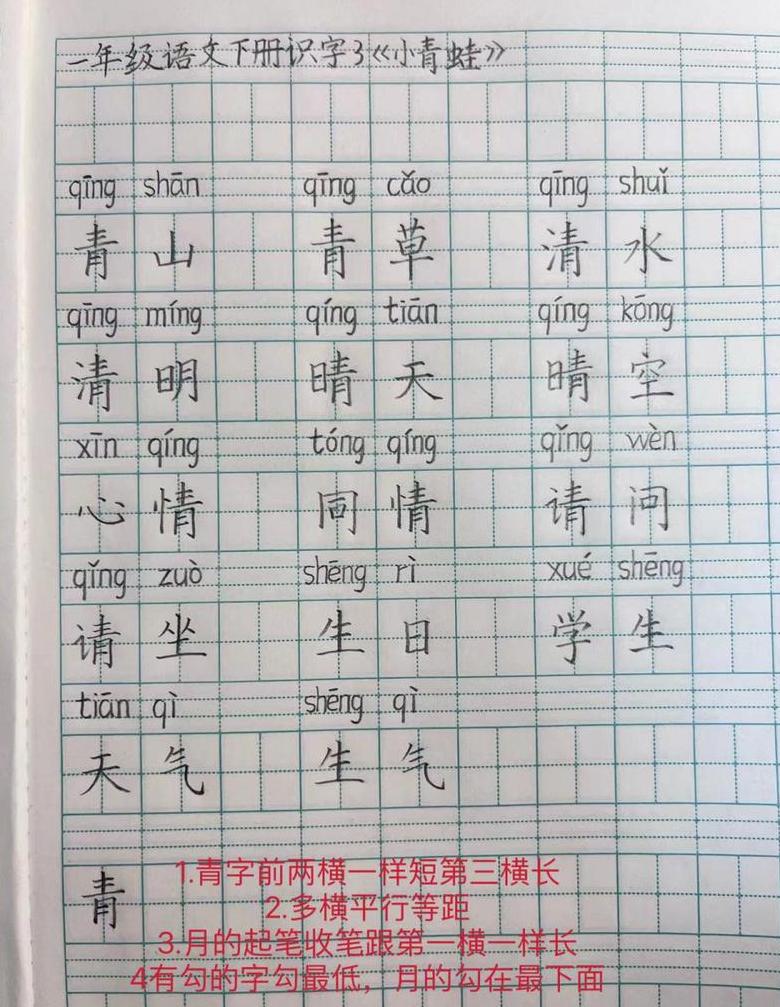 一年级语文下册识字3《小青蛙》
qīng shān qīng cǎo qīng shuǐ
青山 青草 清水
qīng míng qíng tiān qíng kōng
清明 晴天 晴空
xīn qíng tóng qíng qǐng wèn
心情 同情 请问
qǐng zuò shēng rì xué shēng
请坐 生日 学生
tiān qì shēng qì
天气 生气
青
1.青字前两横一样短第三横长
2.多横平行等距
3.月的起笔收笔跟第一横一样长
4有勾的字勾最低，月的勾在最下面